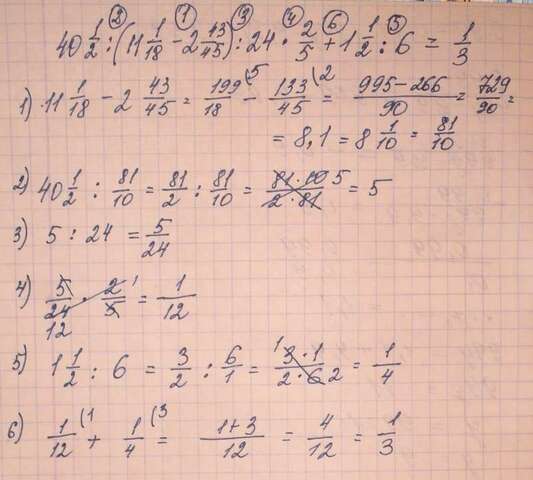 ② ① ③ ④ ⑥ ⑤
40 1/2 : (11 1/18 - 2 43/45) : 24 · 2/5 + 1 1/2 : 6 = 1/3
1) 11 1/18 - 2 43/45 = 199/18 (5 - 133/45 (2 = 995-266/90 = 729/90 =
= 8,1 = 8 1/10 = 81/10
2) 40 1/2 : 81/10 = 81/2 : 81/10 = 81·10/2·81 5 = 5
3) 5 : 24 = 5/24
4) 5/24 · 2/5 1 = 1/12
12
5) 1 1/2 : 6 = 3/2 : 6/1 = 1 3·1/2·6 2 = 1/4
6) 1/12 (1 + 1/4 (3 = 1+3/12 = 4/12 = 1/3